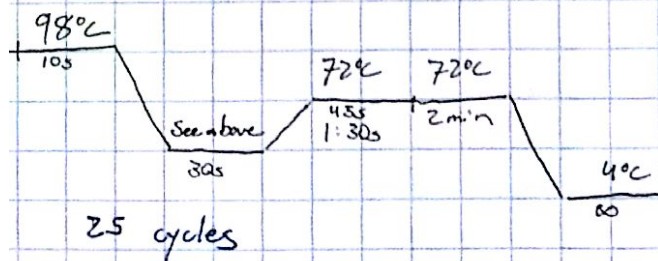 98°C
10s
See above
30s
72°C
45s
1:30s
72°C
2min
4°C
∞
25 cycles